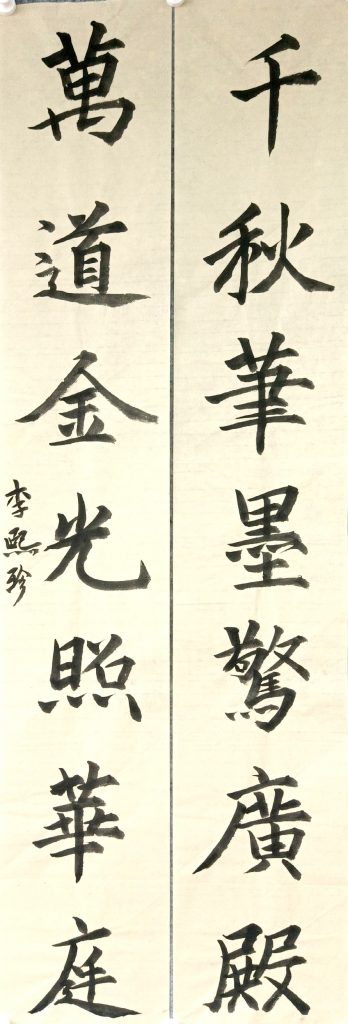 千秋筆墨驚廣殿
萬道金光照華庭
李熙珍